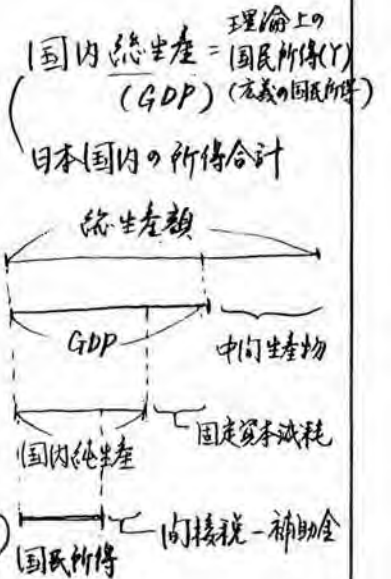 国内総生産 = 理論上の
国民所得(Y)
(GDP) (広義の国民所得)
日本国内の所得合計
総生産額
GDP
中間生産物
国内純生産
固定資本減耗
国民所得
間接税-補助金